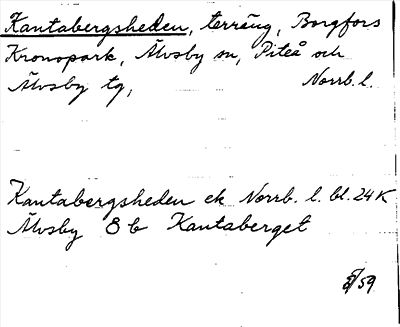 Kantabergsheden, terräng, Borgfors
Kronopark, Älvsby sn, Piteå och
Älvsby tg, Norrb. l.
Kantabergsheden ek Norrb. l. bl. 24 K
Älvsby 8 b Kantaberget
/59